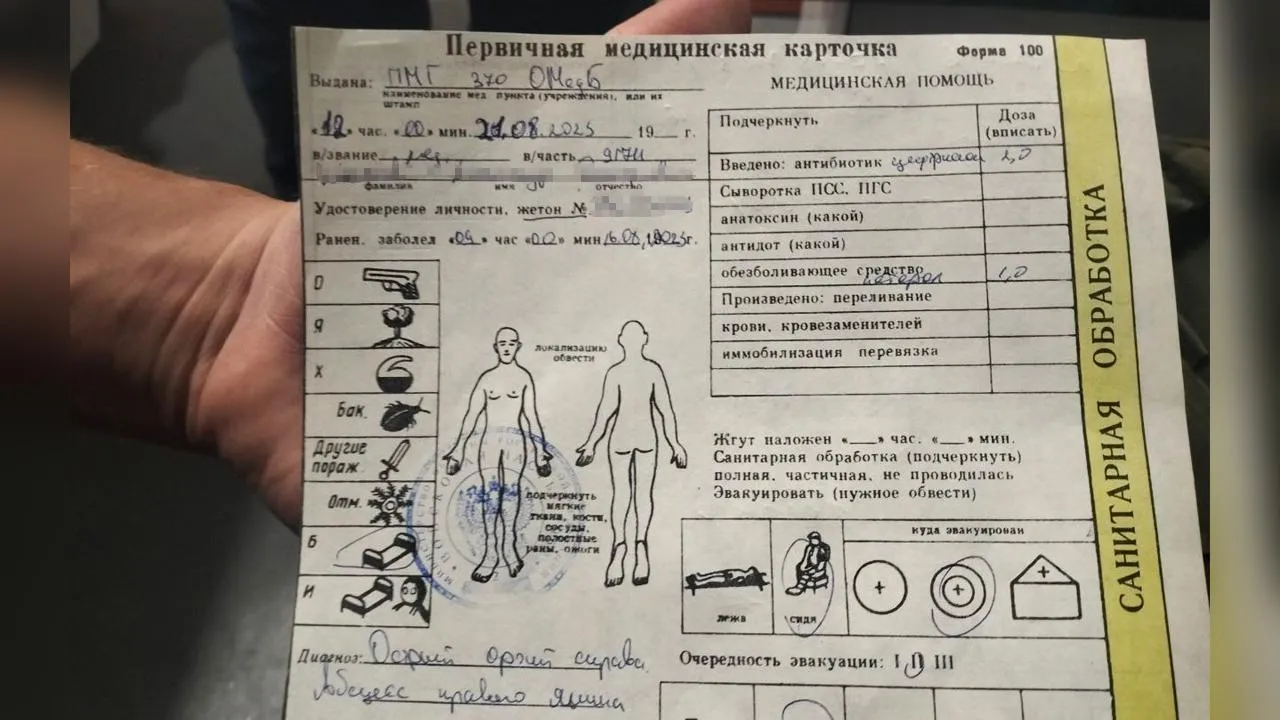 Первичная медицинская карточка
Форма 100
Выдана: ПМГ 370 ОМедБ
наименование мед пункта (учреждения), или их
штамп
«12» час. «00» мин. 21.08.2025 19 г.
в/звание ряд. в/часть
фамилия имя отчество
Удостоверение личности, жетон №
Ранен, заболел «09» час «00» мин 16.08. 2025г.
О
Я
Х
Бак.
Другие
пораж.
Отм.
Б
И
локализацию
обвести
подчеркнуть
мягкие
ткани, кости,
сосуды,
полостные
раны, ожоги
Диагноз: Острый орхит справа.
Абсцесс правого яичка
МЕДИЦИНСКАЯ ПОМОЩЬ
Подчеркнуть
Доза
(вписать)
Введено: антибиотик 2,0
Сыворотка ПСС, ПГС
анатоксин (какой)
антидот (какой)
обезболивающее средство 1,0
кеторол
Произведено: переливание
крови, кровезаменителей
иммобилизация перевязка
Жгут наложен «___» час. «___» мин.
Санитарная обработка (подчеркнуть)
полная, частичная, не проводилась
Эвакуировать (нужное обвести)
куда эвакуирован
лежа
сидя
Очередность эвакуации: I II III
САНИТАРНАЯ ОБРАБОТКА